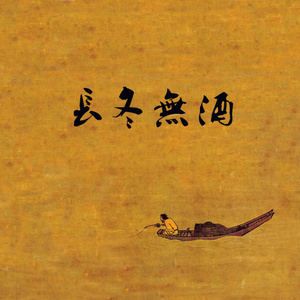 長冬無酒